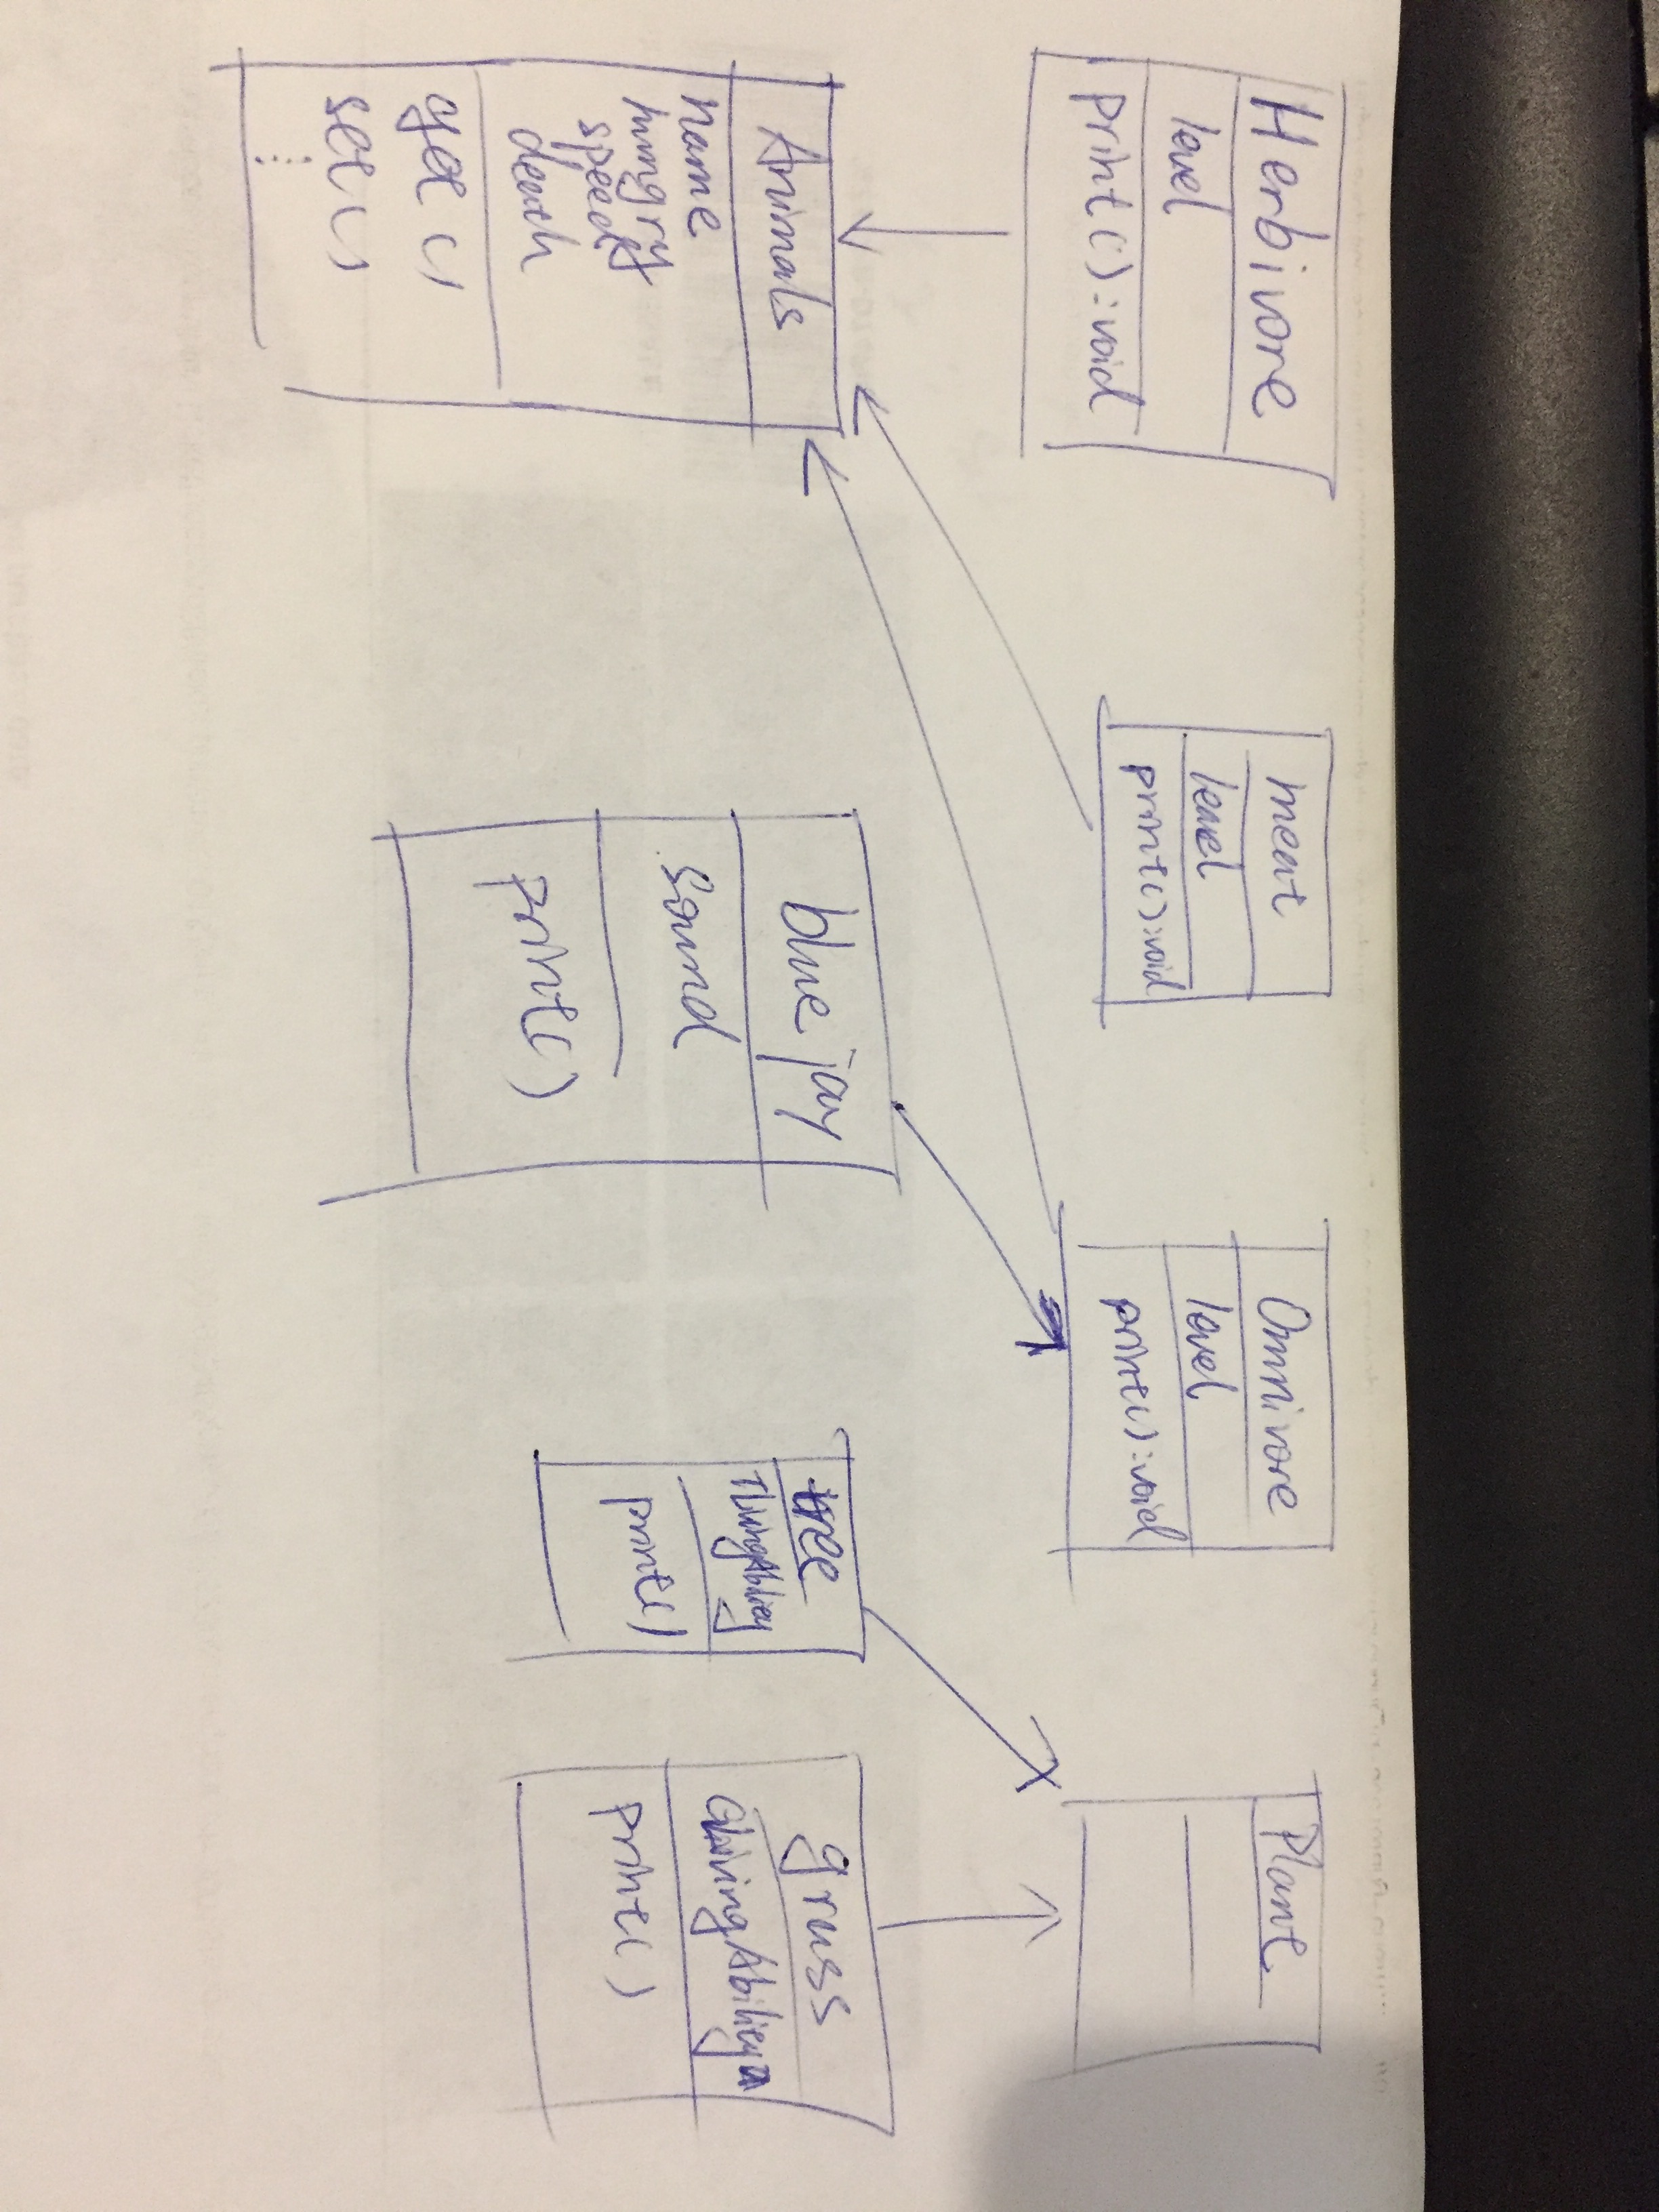 Herbivore
level
print():void
meat
level
print():void
Omnivore
level
print():void
Plant
Animals
name
hungry
speed
death
get()
set()
.....
blue jay
sound
print()
tree
TLivingAbility
print()
grass
GLivingAbility
print()